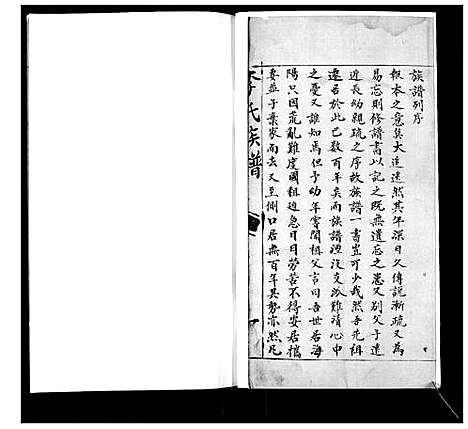 族譜列序
報本之意莫大追遠然其年深日久傳說漸疏又為
易忘則修譜書以記之既無遺忘之患又別父子遠
近長幼親疏之序故族譜一書豈可少哉然吾花祖
遷居於此已數百年矣而族譜湮沒支派難清心中
之憂又誰知焉但予幼年嘗聞祖父言曰吾世居海
陽只因荒亂難度國租迫急日日勞苦不得安居
妻並子葉家而去又至側口居無百年其勢亦然凡
李氏族譜